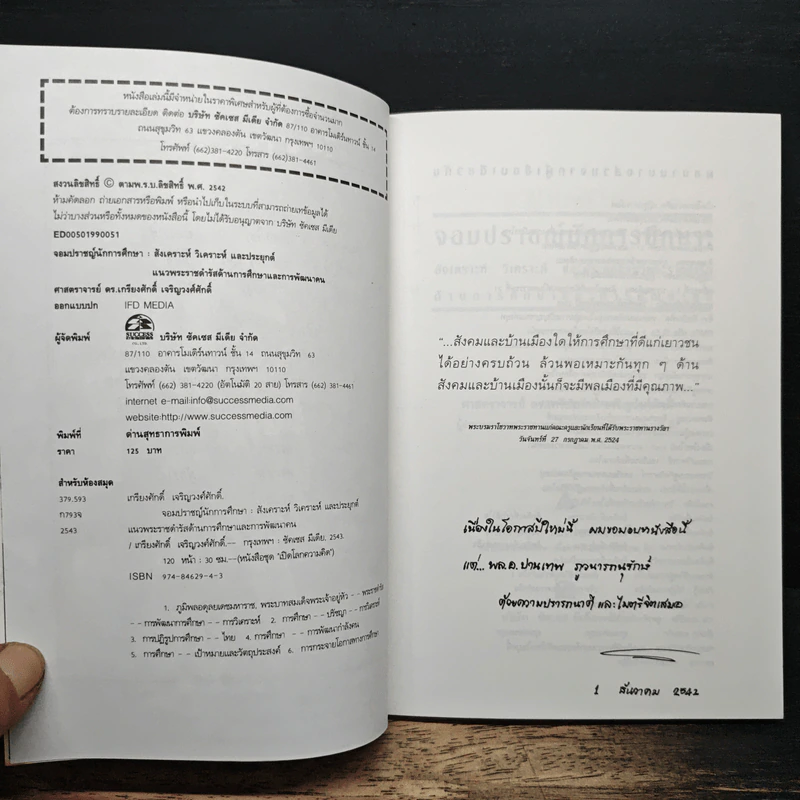 หนังสือเล่มนี้มีจำหน่ายในราคาพิเศษสำหรับผู้ที่ต้องการซื้อจำนวนมาก
ต้องการทราบรายละเอียด ติดต่อ บริษัท ซัคเซส มีเดีย จำกัด 87/110 อาคารโมเดิร์นทาวน์ ชั้น 14
ถนนสุขุมวิท 63 แขวงคลองตัน เขตวัฒนา กรุงเทพฯ 10110
โทรศัพท์ (662)381-4220 โทรสาร (662)381-4461
สงวนลิขสิทธิ์ © ตามพ.ร.บ.ลิขสิทธิ์ พ.ศ. 2542
ห้ามคัดลอก ถ่ายเอกสารหรือพิมพ์ หรือนำไปเก็บในระบบที่สามารถถ่ายเทข้อมูลได้
ไม่ว่าบางส่วนหรือทั้งหมดของหนังสือนี้ โดยไม่ได้รับอนุญาตจาก บริษัท ซัคเซส มีเดีย
ED00501990051
จอมปราชญ์นักการศึกษา : สังเคราะห์ วิเคราะห์ และประยุกต์
แนวพระราชดำรัสด้านการศึกษาและการพัฒนาคน
ศาสตราจารย์ ดร.เกรียงศักดิ์ เจริญวงศ์ศักดิ์
ออกแบบปก IFD MEDIA
SUCCESS
ผู้จัดพิมพ์ บริษัท ซัคเซส มีเดีย จำกัด
87/110 อาคารโมเดิร์นทาวน์ ชั้น 14 ถนนสุขุมวิท 63
แขวงคลองตัน เขตวัฒนา กรุงเทพฯ 10110
โทรศัพท์ (662) 381-4220 (อัตโนมัติ 20 สาย) โทรสาร (662) 381-4461
internet e-mail:info@successmedia.com
website:http://www.successmedia.com
พิมพ์ที่ ด่านสุทธาการพิมพ์
ราคา 125 บาท
สำหรับห้องสมุด
379.593 เกรียงศักดิ์ เจริญวงศ์ศักดิ์.
ก793จ จอมปราชญ์นักการศึกษา : สังเคราะห์ วิเคราะห์ และประยุกต์
2543 แนวพระราชดำรัสด้านการศึกษาและการพัฒนาคน
/ เกรียงศักดิ์ เจริญวงศ์ศักดิ์.-- กรุงเทพฯ : ซัคเซส มีเดีย, 2543.
120 หน้า : 30 ซม.--(หนังสือชุด "เปิดโลกความคิด")
ISBN 974-84629-4-3
1. ภูมิพลอดุลยเดชมหาราช, พระบาทสมเด็จพระเจ้าอยู่หัว -- พระราชดำรัส
-- การพัฒนาการศึกษา -- การวิเคราะห์ 2. การศึกษา -- ปรัชญา -- การวิเคราะห์
3. การปฏิรูปการศึกษา -- ไทย 4. การศึกษา -- การพัฒนากำลังคน
5. การศึกษา -- เป้าหมายและวัตถุประสงค์ 6. การกระจายโอกาสทางการศึกษา
"...สังคมและบ้านเมืองใดให้การศึกษาที่ดีแก่เยาวชน
ได้อย่างครบถ้วน ล้วนพอเหมาะกันทุก ๆ ด้าน
สังคมและบ้านเมืองนั้นก็จะมีพลเมืองที่มีคุณภาพ..."
พระบรมราโชวาทพระราชทานแก่คณะครูและนักเรียนที่ได้รับพระราชทานรางวัลฯ
วันจันทร์ที่ 27 กรกฎาคม พ.ศ. 2524
เนื่องในโอกาสปีใหม่นี้ ผมขอมอบหนังสือนี้
แด่... พล.อ.ปานเทพ ภูวนารถนุรักษ์
ด้วยความปรารถนาดี และไมตรีจิตเสมอ
1 ธันวาคม 2542